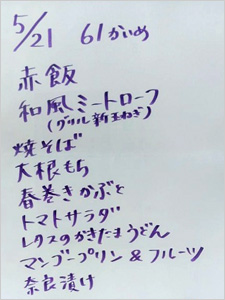 5/21 61かいめ
赤飯
和風ミートローフ
(グリル新玉ねぎ)
焼そば
大根もち
春巻きかぶと
トマトサラダ
レタスのかきたまうどん
マンゴープリン&フルーツ
奈良漬け